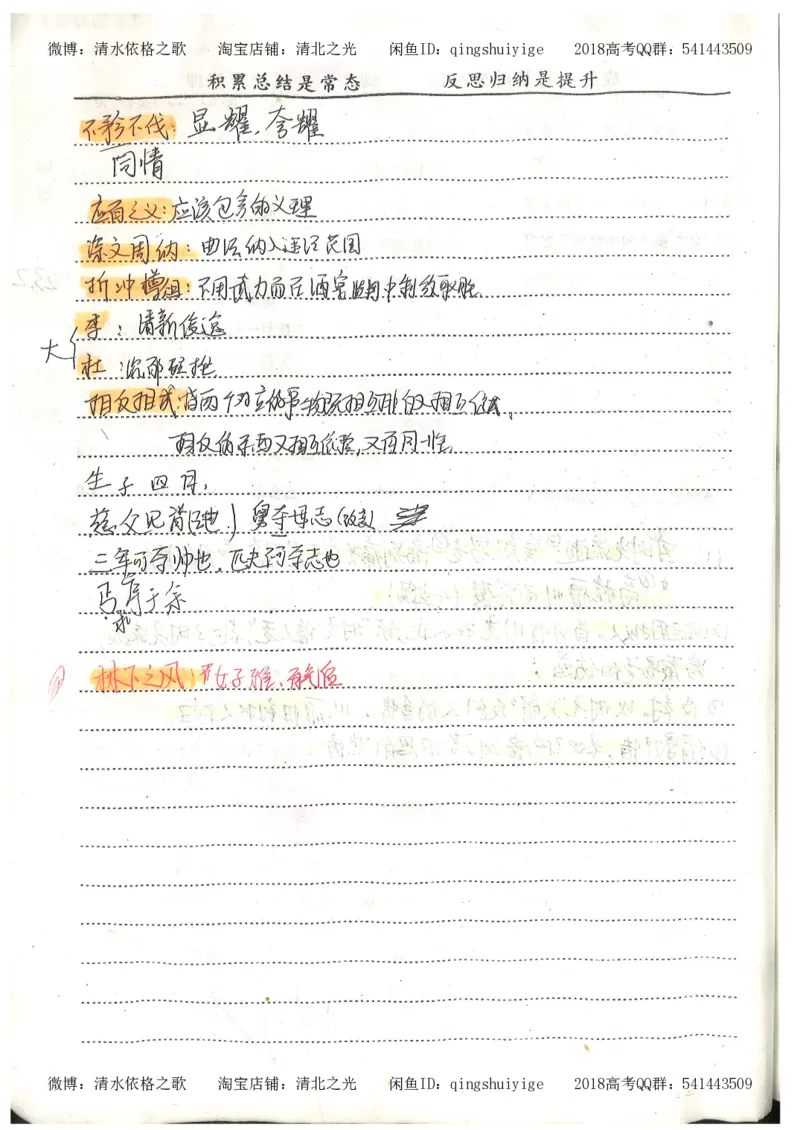 微博：清水依格之歌 淘宝店铺：清北之光 闲鱼ID：qingshuiyige 2018高考QQ群：541443509
积累总结是常态 反思归纳是提升
不矜不伐：显耀，夸耀
同情
应有之义：应该包含的义理
深文周纳：
折冲樽俎：不用武力而在酒宴 中制敌取胜
李：清新俊逸
大
杜：沉郁
相反相成：指两个对立的事物既相互排斥又相互
相反的东西又相互依赖，又有同一性
生子四月，
慈父见背
三军可夺帅也，匹夫不可夺志也
林下之风：指女子雅、有
微博：清水依格之歌 淘宝店铺：清北之光 闲鱼ID：qingshuiyige 2018高考QQ群：541443509